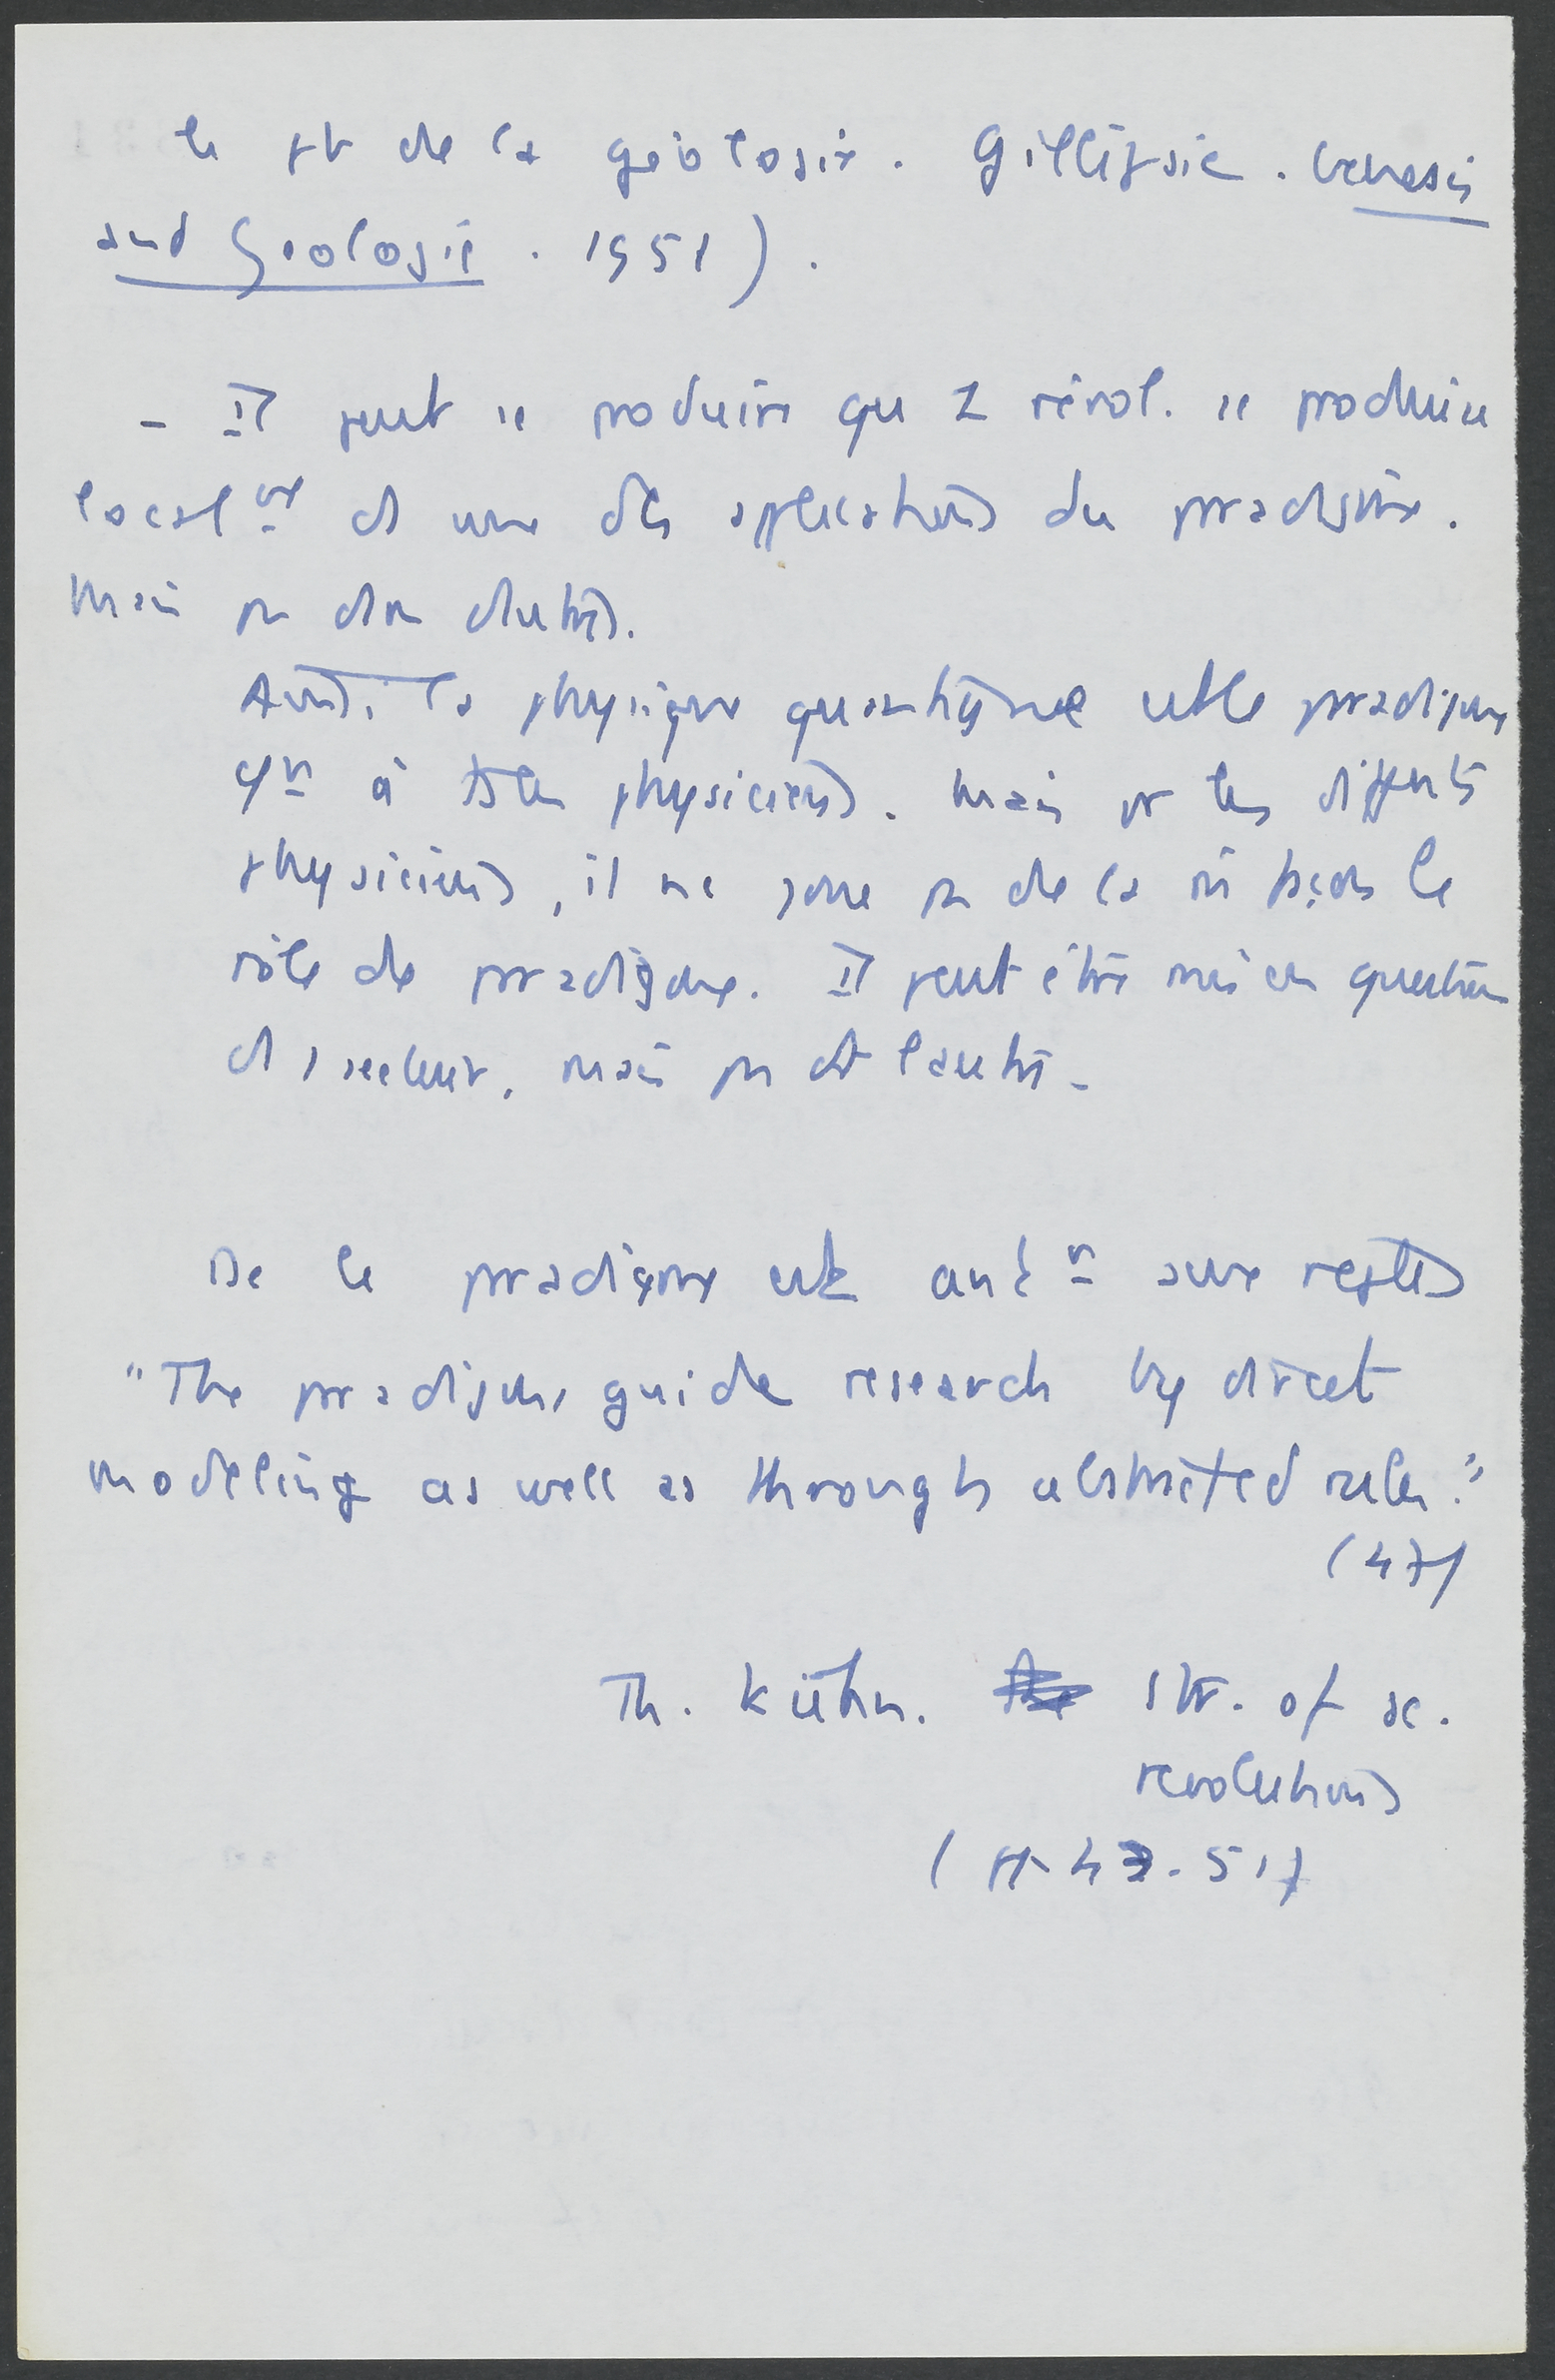 le pt de la géologie. Gillispie. Genesis
and Geologie. 1951).
- Il peut se produire qu 1 révol. se produise
localnt ds une des applications du paradigme.
Mais pas dans d'autres.
Ainsi, la physique quantique est le paradigme
cn à ts les physiciens. Mais pr les différents
physiciens, il ne joue pas de la m façon le
rôle de paradigme. Il peut être mis en question
ds 1 secteur, mais pas ds l'autre.
De le paradigme est antr aux règles
"The paradigms guide research by direct
modeling as well as through abstracted rules."
(47)
Th. Kühn. Str. of sc.
revolutions
(pp. 43-51)